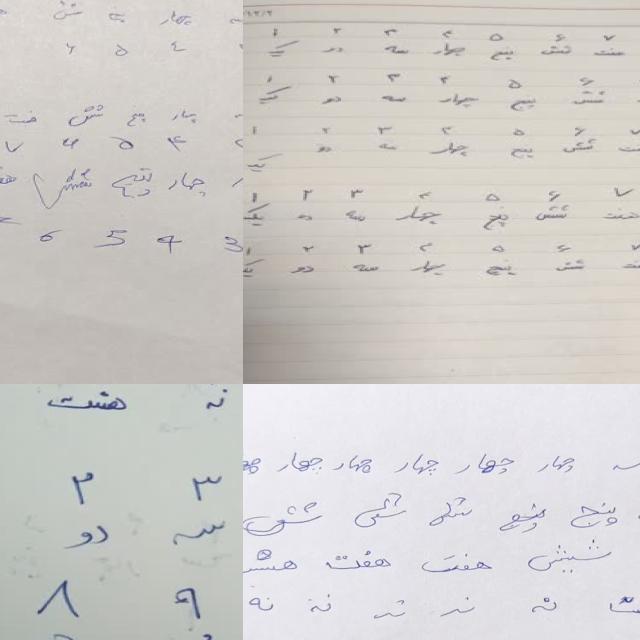 چهار پنج شش
۴ ۵ ۶
چهار پنج شش هفت
۴ ۵ ۶ ۷
چهار پنج شش
3 4 5 6
۱ ۲ ۳ ۴ ۵ ۶ ۷
یک دو سه چهار پنج شش هفت
۱ ۲ ۳ ۴ ۵ ۶
یک دو سه چهار پنج شش
۱ ۲ ۳ ۴ ۵ ۶ ۷
یک دو سه چهار پنج شش
۱ ۲ ۳ ۴ ۵ ۶ ۷
یک دو سه چهار پنج شش هفت
۱ ۲ ۳ ۴ ۵ ۶ ۷
یک دو سه چهار پنج شش
نه هشت
۳ ۲
سه دو
۹ ۸
سه چهار چهار چهار چهار چهار
پنج پنج شش شش شش
شیش هفت هفت
نه نه نه